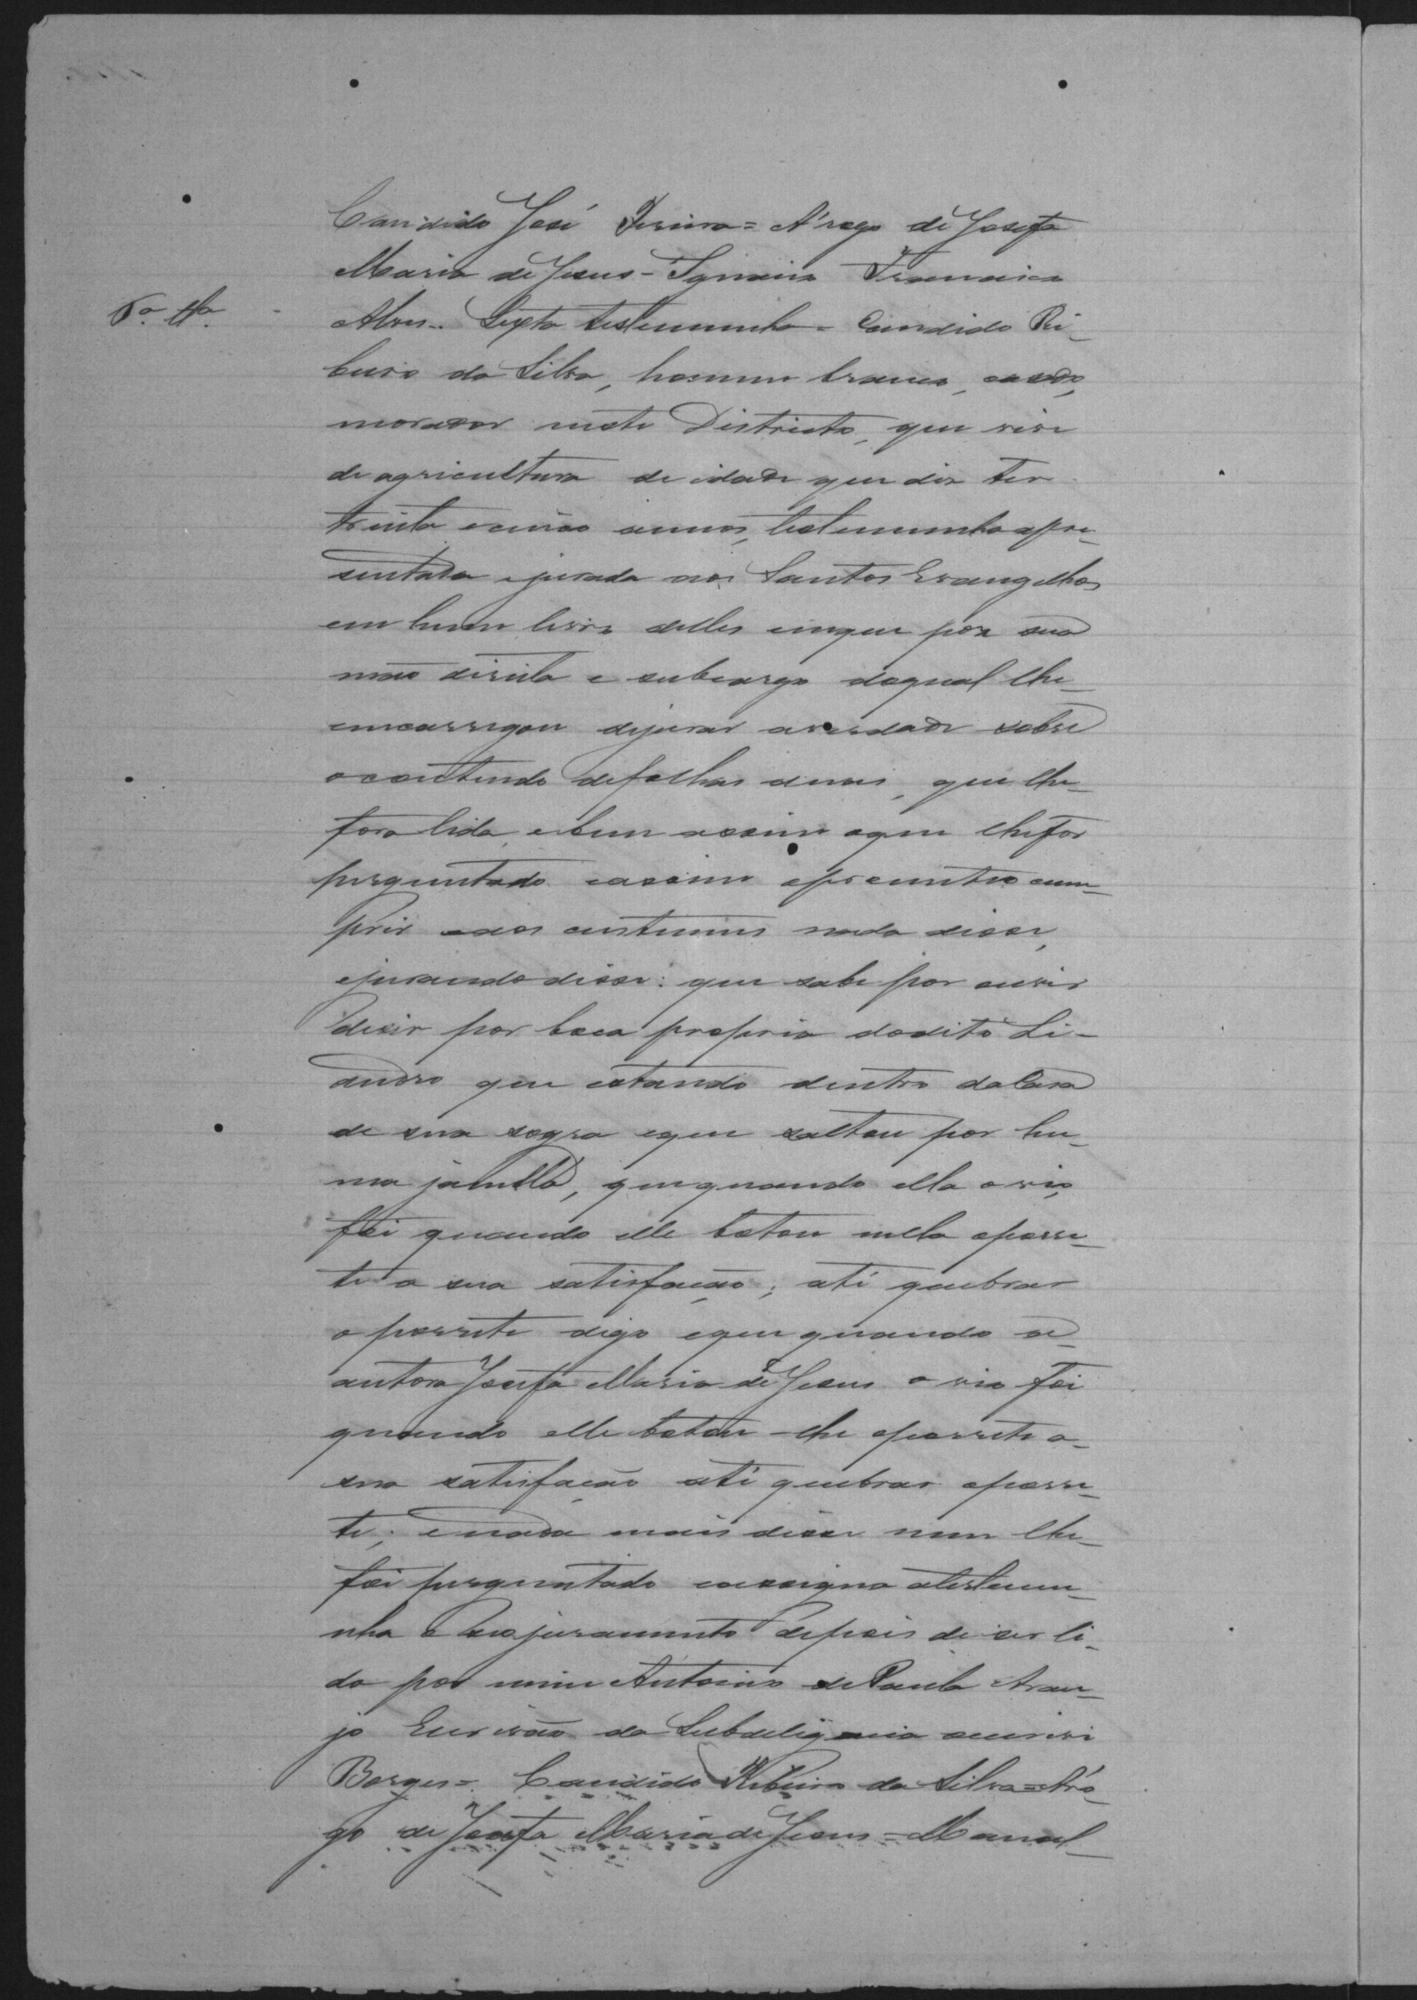 Candido José Pereira = A'rogo de Josefa
Maria de Jesus - Ignacio Francisco
6ª. Ta. Alves -. Sexta testemunha = Candido Ri-
beiro da Silva, homem branco, casado,
morador neste Districto, que vive
de agricultura de idade que diz ter
trinta e cinco annos, testemunha apre-
sentada e jurada aos Santos Evangelhos
em hum livro delles em que pôz sua
mão direita e subcargo do qual lhe
encarregou de jurar a verdade sobre
o contendo de folhas duas, que lhe
fora lida, e bem assim o que lhe for
perguntado e assim o prometteo cum-
prir e aos custumes nada disse,
e jurando disse: que sabe por ouvir
dizir por boca propria do dito Li-
andro que estando dentro da Casa
de sua sogra e que saltou por hu-
ma janella, que quando ella o vio,
foi quando elle botou nella o porre-
te a sua satisfação; até quebrar
o porrete digo e que quando a
autora Josefa Maria de Jesus o vio foi
quando elle botou-lhe o porrete a
sua satisfação até quebrar o porre-
te; e nada mais disse nem lhe
foi perguntado e assigna a testemu-
nha o seo juramento depois de ser li-
do por mim Antonio de Paula Arau-
jo Escrivão da Subdelegacia escrevi
Borges =. Candido Ribeiro da Silva = A'ro-
go de Josefa Maria de Jesus = Manoel